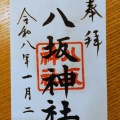 奉拝
八坂神社
令和八年一月二